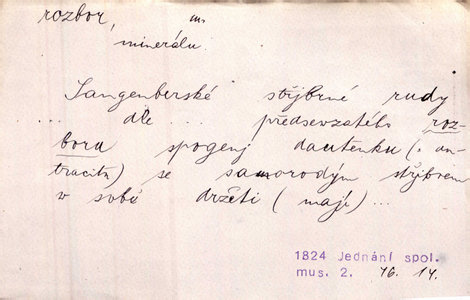 rozbor, m.
minerálu.
Langenberské stříbrné rudy
... dle ... předsevzatého roz-
boru spogený dautenku (: an-
tracitu) se samorodým stříbrem
v sobě držeti (mají) ...
1824 Jednání spol.
mus. 2. 16. 14.